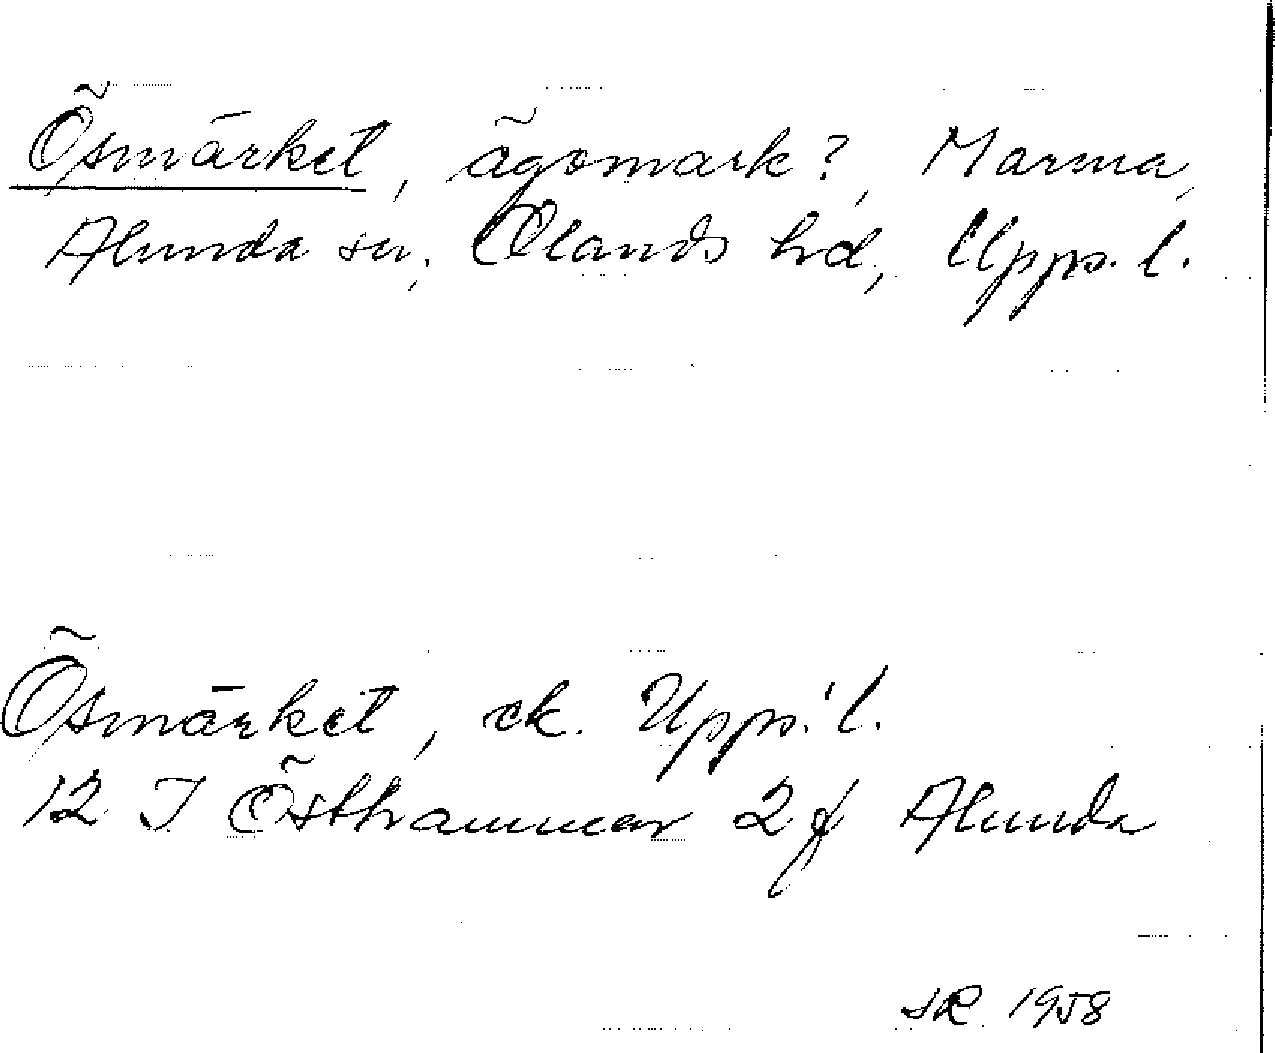 Ösmärket, ägomark?, Marma,
Alunda sn, Olands hd, Upps. l.
Ösmärket, ek. Upps. l.
12 I Östhammar 2 f Alunda
SR 1958